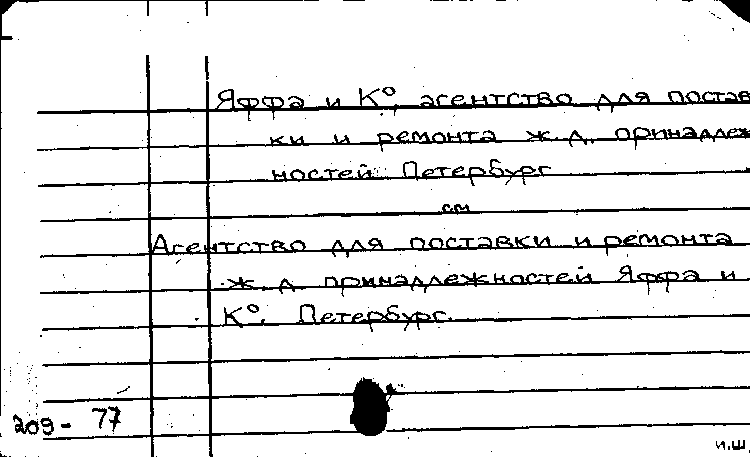 Яффа и К°, агентство для постав
ки и ремонта ж.д. принадлеж
ностей Петербург
см
Агентство для поставки и ремонта
ж.д. принадлежностей Яффа и
К°. Петербург.
209 - 77
и.ш